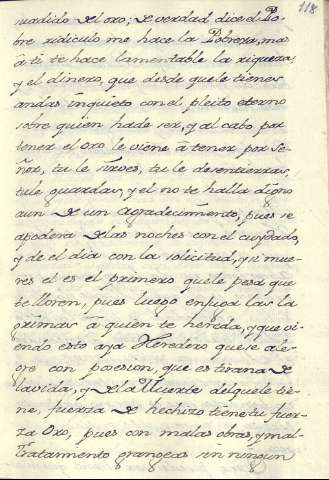 118
uadido del oro; de verdad dice el Po-
bre ridiculo me hace la Pobreza, mas
â ti te hace lamentable la riqueza,
y el dinero, que desde que le tienes
andas inquieto con el pleito eterno
sobre quien hade ser, y al cabo por
tener el Oro le viene â tener por Se-
ñor, tu le sirves, tu le desentierras,
tu le guardas, y el no te halla digno
aun de un agradecimiento, pues se
apodera delas noches con el cuydado,
y de el dia con la solicitud, y si mue-
res el es el primero que le pesa que
te lloren, pues luego enjuga las la
grimas â quien te hereda, y que vi-
endo esto aya Heredero que se ale-
gre con posesion, que es tirana de
la vida, y de la Muerte del que le tie-
ne, fuerza de hechizo tiene tu fuer-
za Oro, pues con malas obras, y mal-
tratamiento grangeas sin ningun